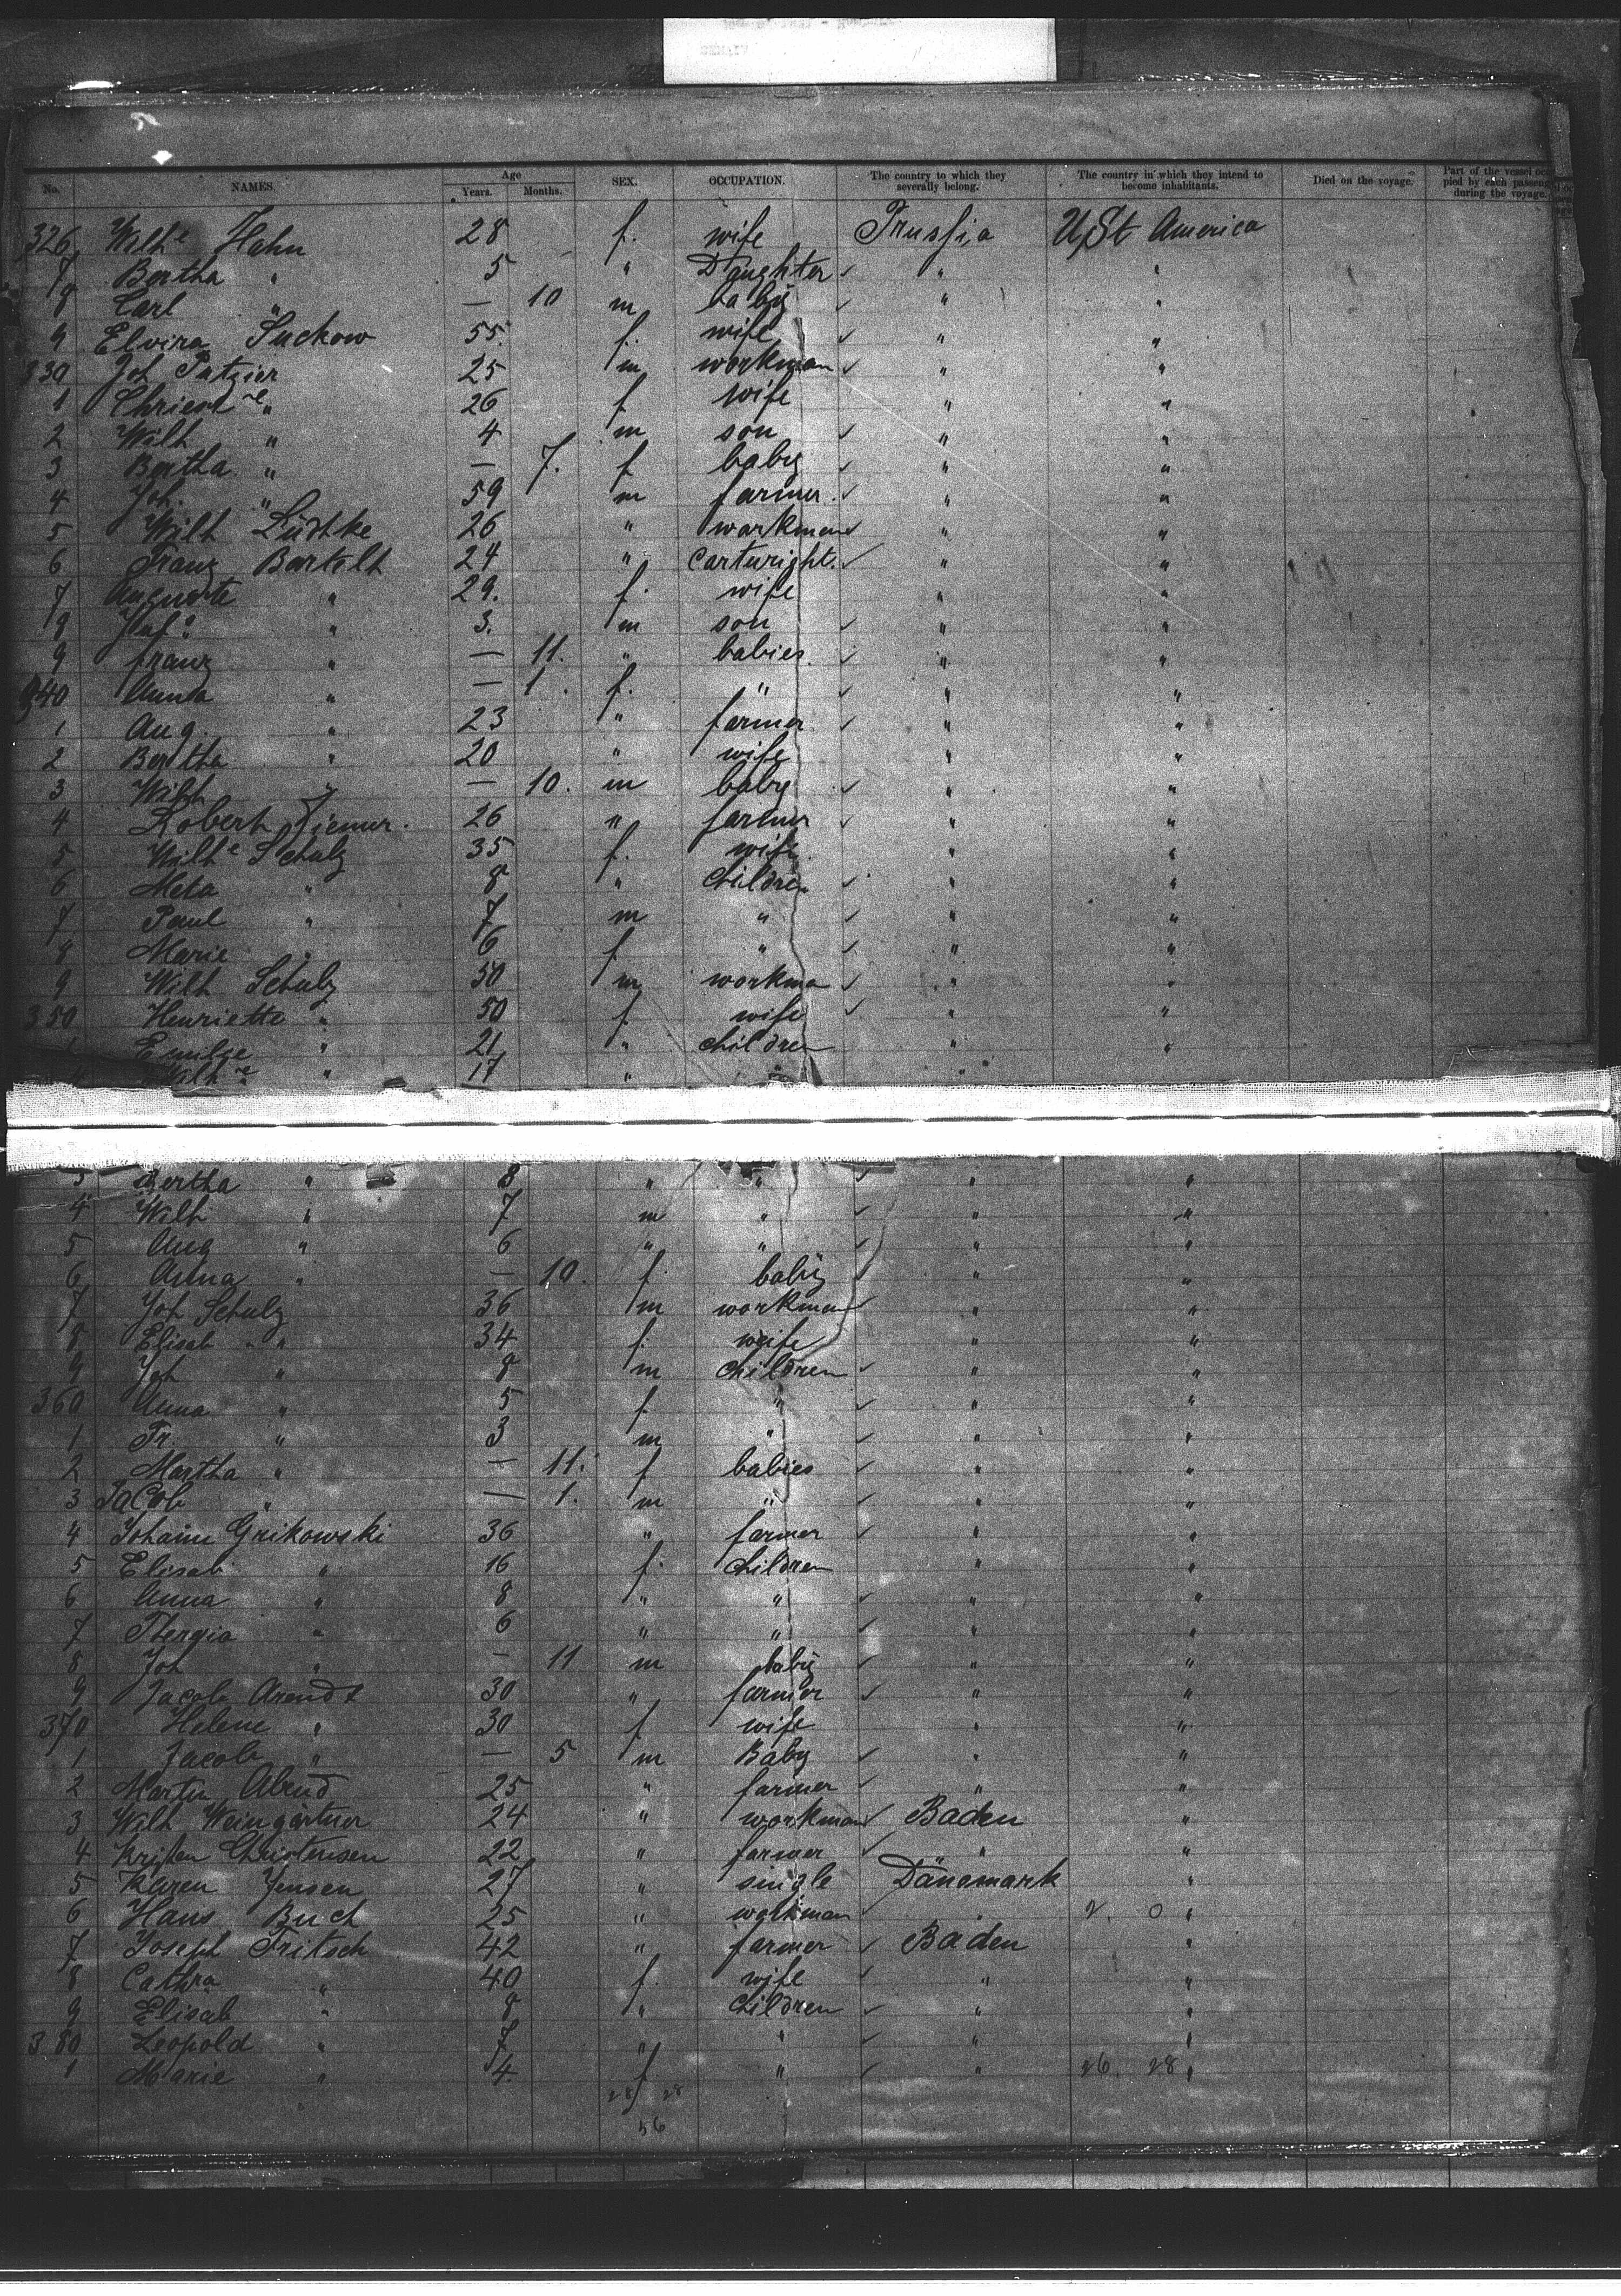 No. NAMES. Age Years. Months. SEX. OCCUPATION. The country to which they severally belong. The country in which they intend to become inhabitants. Died on the voyage. Part of the vessel occupied by each passenger during the voyage.
326 Wilhe Hahn 28 f. wife Prussia U/St America
7 Bertha " 5 " Daughter " "
8 Carl " — 10 m baby " "
9 Elvira Suckow 55. f. wife " "
330 Joh Patzier 25 m workman " "
1 Christne " 26 f wife " "
2 Wilh " 4 m son " "
3 Bertha " — 7. f baby " "
4 Joh. " 59 m farmer. " "
5 Wilh Lüdtke 26 " workman " "
6 Franz Bartelt 24 " Carturight. " "
7 Auguste " 29. f. wife " "
8 " 3. m son " "
9 franz " — 11. " babies. " "
340 Anna " — 1. f. " " "
1 Aug. " 23 " farmer " "
2 Bertha " 20 " wife " "
3 Wilh " — 10. m baby " "
4 Robert 26 " farmer " "
5 Wilhe Schulz 35 f. wife " "
6 Meta " 8 " Children " "
7 Paul " 7 m " " "
8 Marie " 6 f " " "
9 Wilh Schulz 50 m workma " "
350 Henriette " 50 f wife " "
Emilie " 21 " children " "
Wilhe " 17 " " "
3 Bertha " 8 " " " "
4 Wilh " 7 m " " "
5 Aug " 6 " " " "
6 Anna " — 10. f. baby " "
7 Joh Schulz 36 m workman " "
8 Elisab " 34 f. weife " "
9 Joh " 8 m Children " "
360 Anna " 5 f. " " "
1 Fr. " 3 m " " "
2 Martha " — 11. f babies " "
3 Jacob " — 1. m " " "
4 Johann Grikowski 36 " farmer " "
5 Elisab " 16 f. Children " "
6 Anna " 8 " " " "
7 " 6 " " " "
8 Joh " — 11 m baby " "
9 Jacob Arendt 30 " farmer " "
370 Helene " 30 f wife " "
1 Jacob " — 5 m Baby " "
2 Martin Abend 25 " farmer " "
3 Wilh Weingärtner 24 " workman Baden "
4 Kristen Christensen 22 " farmer " "
5 Karen Jensen 27 " single Dänemark "
6 Hans Buch 25 " workman " 2. 0 "
7 Joseph Fritsch 42 " farmer Baden "
8 Cathra " 40 f. wife " "
9 Elisab " 8 " Children " "
380 Leopold " 7 " " " "
1 Marie " 4. f " " 26. 28 "
28 28
56